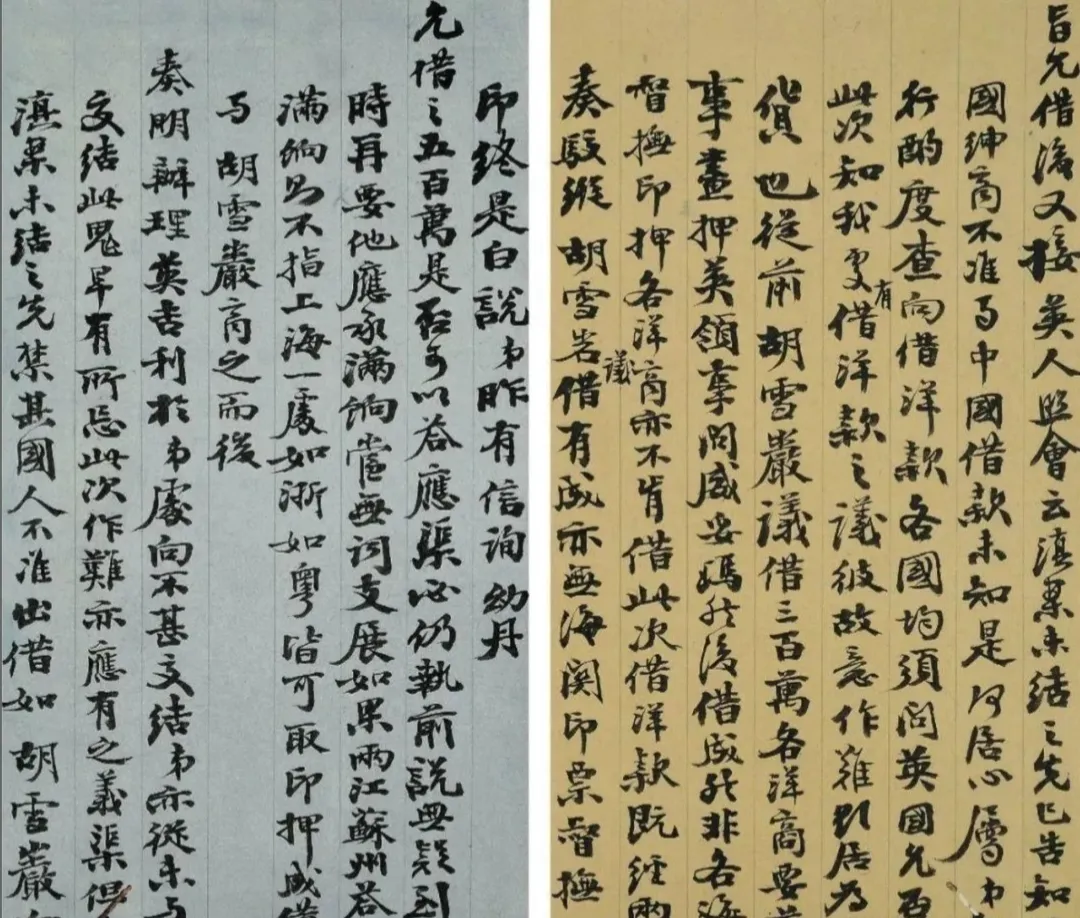 旨允借後又接英人照會云滇案未結之先已告知
國紳商不准与中國借款未知是何居心屬弟
行酌度查向借洋款各國均須問英國允否
此次知我更有借洋款之議彼故意作難則居為
貨也從前胡雪嚴議借三百萬各洋商要
事畫押英領事問威妥瑪然後借成然非各海
督撫印押各洋商亦不肯借此次借洋款既經兩
奏駁縱胡雪岩議借有成亦無海關印票督撫
印終是白說弟昨有信詢幼丹
允借之五百萬是否可以答應渠必仍執前說無疑到
時再要他應承滿餉當無詞支展如果兩江蘇州答
滿餉曷不指上海一處如浙如粵皆可取印押成借
与胡雪嚴商之而後
奏明辦理英吉利於弟處向不甚交結弟亦從未与
交結此鬼早有所忌此次作難亦應有之義渠但
滇案未結之先禁其國人不准出借如胡雪嚴